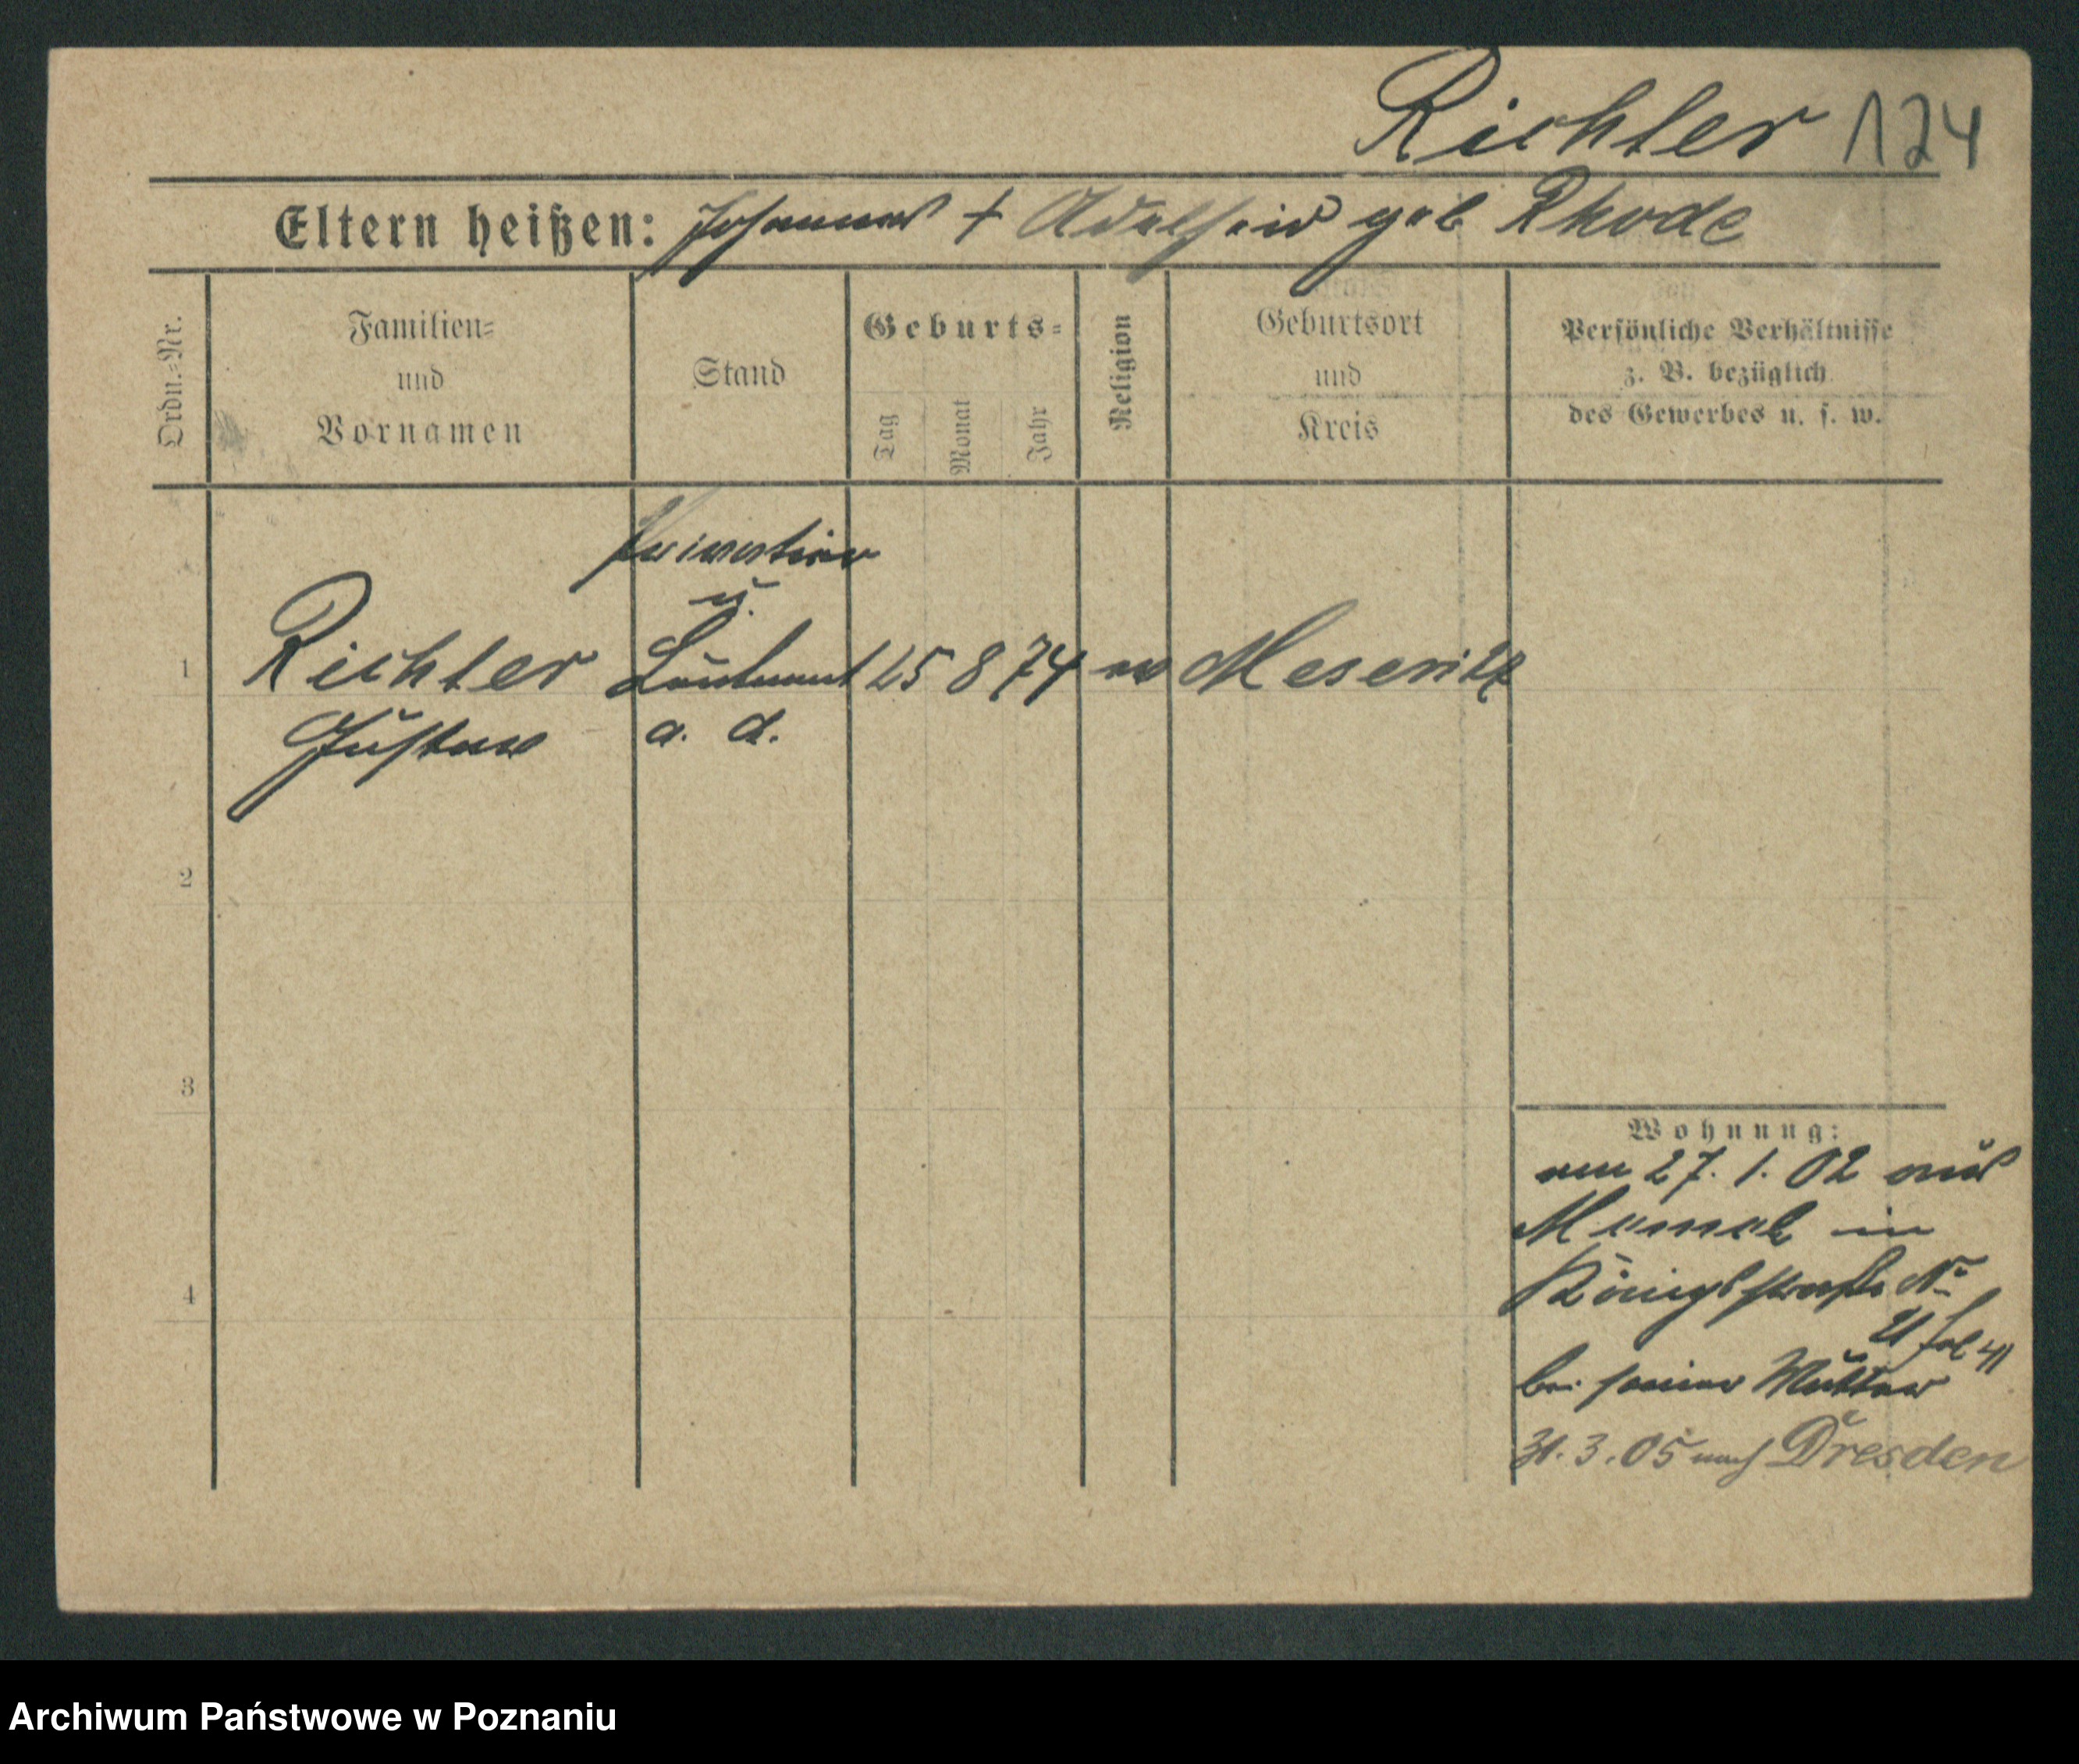 Richter 124
Eltern heißen: Johannes + Adelheid geb Rhode
Ordn.-Nr.
Familien-
und
Vornamen
Stand
Geburts-
Tag
Monat
Jahr
Religion
Geburtsort
und
Kreis
Persönliche Verhältnisse
z. B. bezüglich
des Gewerbes u. s. w.
u.
1 Richter Leutnant 25 8 74 ev Meseritz
Gustav a. d.
2
3
4
Wohnung:
am 27. 1. 02 aus
Memel in
Königsstraße No
21 fol 41
bei seiner Mutter
31. 3. 05 nach Dresden
Archiwum Państwowe w Poznaniu